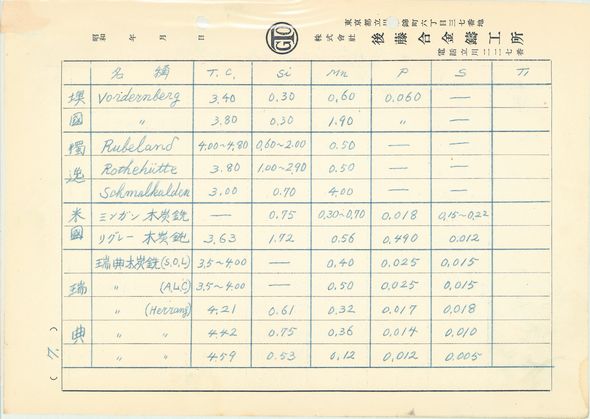 東京都立川 錦町六丁目三七番地
株式會社 後藤合金鑄工所
電話立川二二二七番
昭和 年 月 日
GTO
名 稱 T.C. Si Mn P S Ti
墺國 Voidernberg 3.40 0.30 0.60 0.060 —
〃 3.80 0.30 1.90 〃 —
獨逸 Rubeland 4.00~4.80 0.60~2.00 0.50 — —
Rothehütte 3.80 1.00~2.90 0.50 — —
Schmalkalden 3.00 0.70 4.00 — —
米國 ミシガン 木炭銑 — 0.75 0.30~0.70 0.018 0.15~0.22
リグレー 木炭銑 3.63 1.72 0.56 0.490 0.012
瑞典 瑞典木炭銑(S.O.L) 3.5~4.00 — 0.40 0.025 0.015
〃 (A.L.C) 3.5~4.00 — 0.50 0.025 0.015
〃 (Herrang) 4.21 0.61 0.32 0.017 0.018
〃 〃 4.42 0.75 0.36 0.014 0.010
〃 〃 4.59 0.53 0.12 0.012 0.005
( 7. )